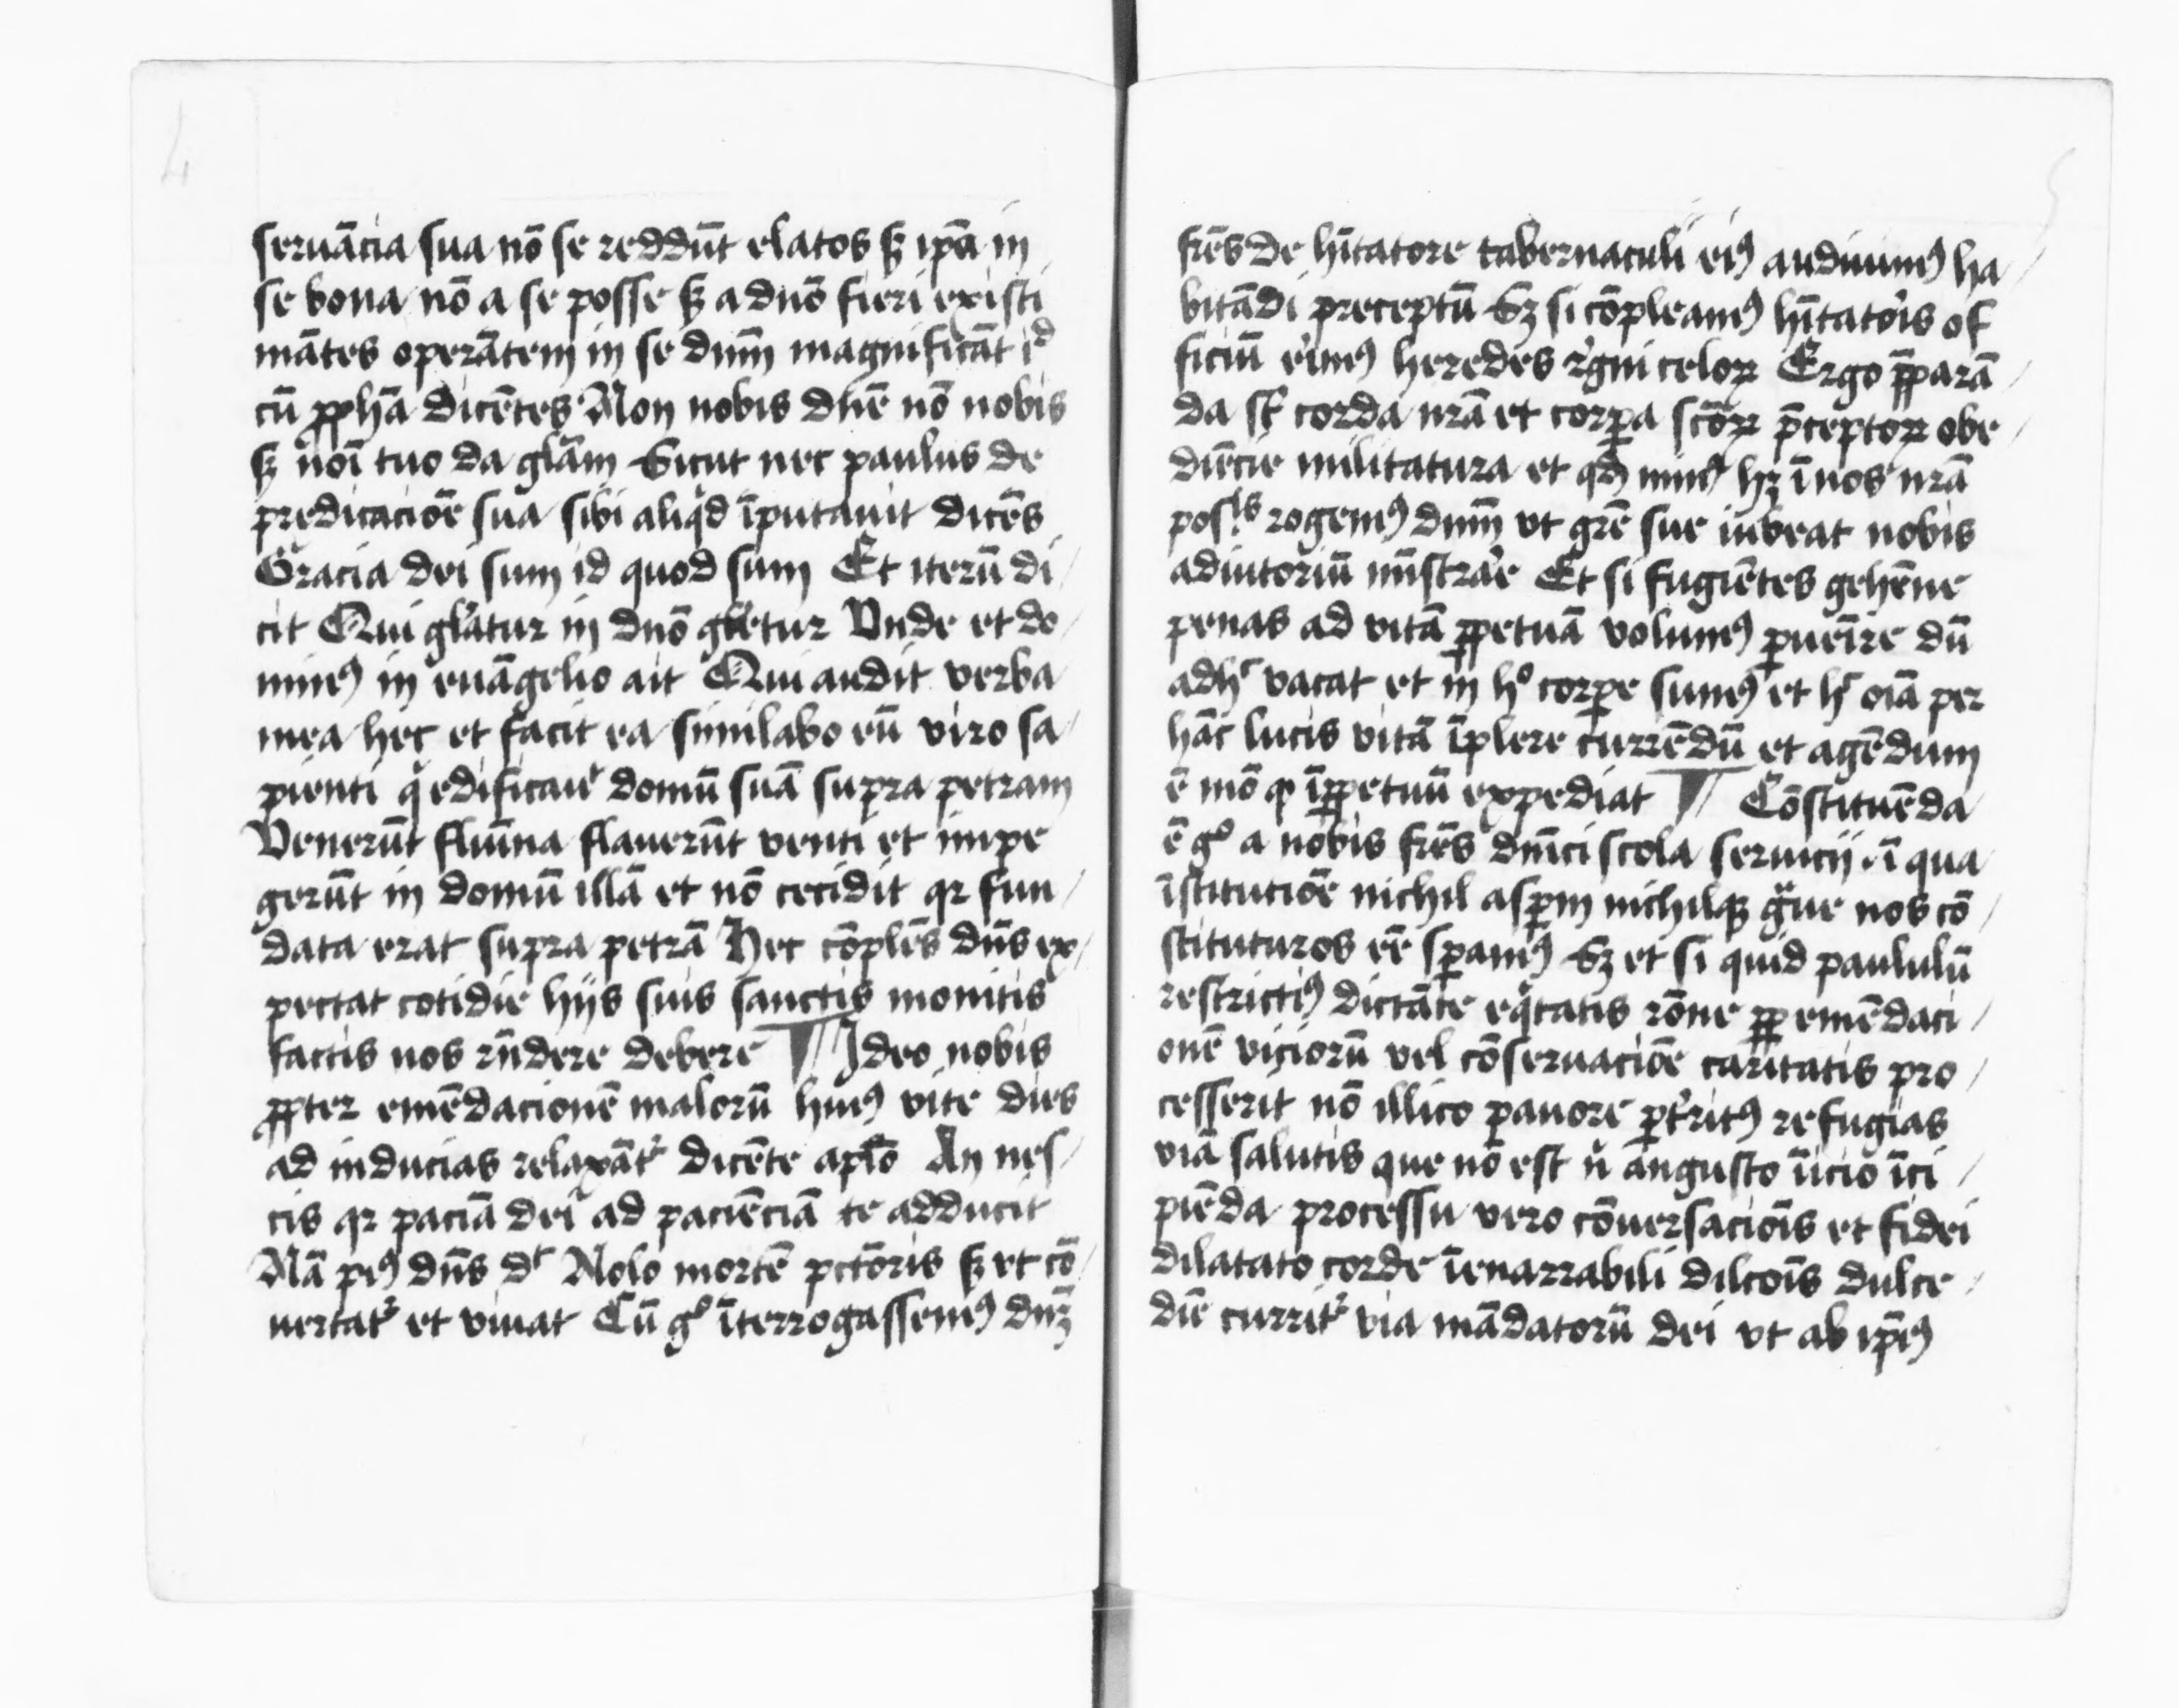 4
seruācia sua nō se reddūt elatos sʒ ip̄a in
se bona nō a se posse sʒ a dnō fieri existi
mātes operātem in se dnm̄ magnificāt id
cū ꝓph̄a dicētes Non nobis dn̄e nō nobis
sʒ noī tuo da gl̄am Sicut nec paulus de
predicaciōe sua sibi aliqd īputauit dicēs
Gracia dei sum id quod sum Et iterū di
cit Qui gl̄atur in dnō gl̄etur Vnde et do
minꝰ in euāgelio ait Qui audit verba
mea hec et facit ea similabo eū viro sa
pienti q edificauͭ domū suā supra petram
Venerūt flūina flauerūt venti et impe
gerūt in domū illā et nō cecidit qꝛ fun
data erat supra petrā Hec cōplēs dn̄s ex
pectat cotidie hijs suis sanctis monitis
factis nos rn̄dere debere ¶ Ideo nobis
ꝓpter emēdacionē malorū huiꝰ vite dies
ad inducias relaxātᷣ dicēte apl̄o An nes
cis qꝛ paciā dei ad paciēciā te adducit
Nā piꝰ dn̄s dͭ Nolo mortē pctōris sʒ vt cō
uertatᷣ et viuat Cū gͦ īterrogassemꝰ dnʒ
5
fr̄es de hītatore tabernaculi eiꝰ audiuimꝰ ha
bitādi preceptū Sʒ si cōpleamꝰ hītatoris of
ficiū erimꝰ heredes rgni celoꝝ Ergo p̄parā
da st̄ corda nr̄a et corꝑa sc̄oꝝ p̄ceptoꝝ obe
diēcie militatura et qd minꝰ hʒ ī nos nr̄a
posˡˢ rogemꝰ dnm̄ vt gr̄e sue iubeat nobis
adiutoriū mīstrare Et si fugiētes gehēne
penas ad vitā ꝑpetuā volumꝰ ꝑueīre dū
adhͨ vacat et in hͦ corꝑe sumꝰ et hͨ oīa per
hāc lucis vitā īplere currēdū et agēdum
ē mō qͩ īꝑpetuū expediat ¶ Cōstituēda
ē gͦ a nobis fr̄es dnīci scola seruicij . ī qua
īstitutiōe nichil asꝑm nichilqʒ gͣue nos cō
stituturos ēe sꝑamꝰ Sʒ et si quid paululū
restrictiꝰ dictāte eqͥtatis rōne ꝓp emēdaci
onē viciorū vel cōseruaciōe caritatis pro
cesserit nō illico pauore ꝑtritꝰ refugias
viā salutis que nō est ň angusto īicio īci
piēda processu vero cōuersaciōis et fidei
dilatato corde īenarrabili dilcōis dulce
dīe curritᷣ via mādatorū dei vt ab ip̄iꝰ